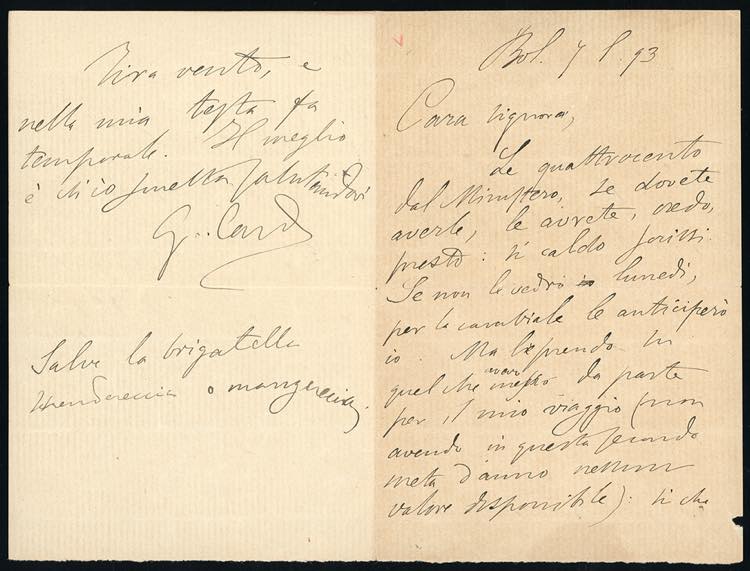 Bol. 7 l. 93
Cara signora,
Le quattrocento
dal Ministero, se dovete
averle, le avrete, credo,
presto: sì caldo scrissi.
Se non le vedrò lunedì,
per la cambiale le anticiperò
io. Ma le prendo in
quel che avevo messo da parte
per il mio viaggio (non
avendo in questa seconda
metà d'anno nessun
valore disponibile): sì che
Tira vento, e
nella mia testa fa
temporale. Il meglio
è ch'io smetta salutandovi
G. Card
Salve la brigatella
merendereccia o mangereccia